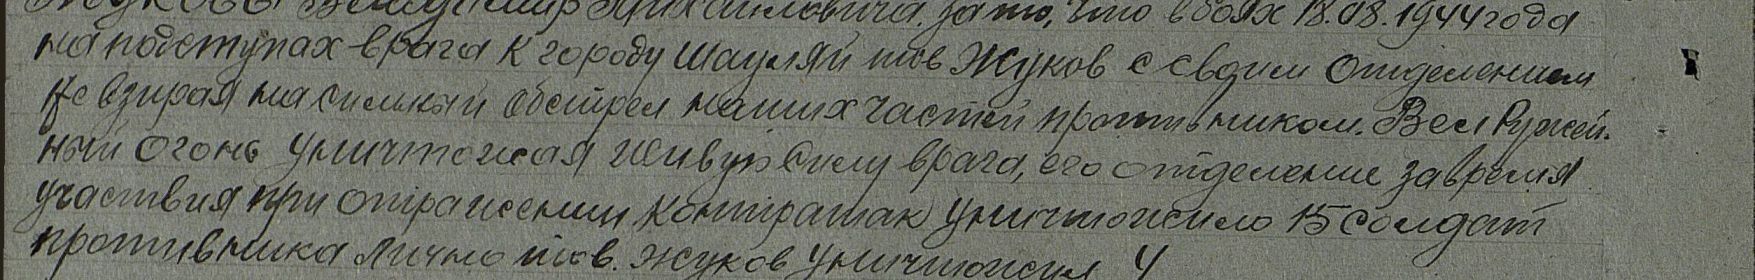 Жукова Владимир Михайловича. за то, что в боях 18.08.1944 года
на подступах врага к городу Шауляй тов Жуков с своим отделением
Не взирая на сильный обстрел наших частей противником. Вел Ружей-
ный огонь уничтожая живую силу врага, его отделение за время
участвия при отражении контратак уничтожило 15 солдат
противника лично тов. Жуков уничтожил 4